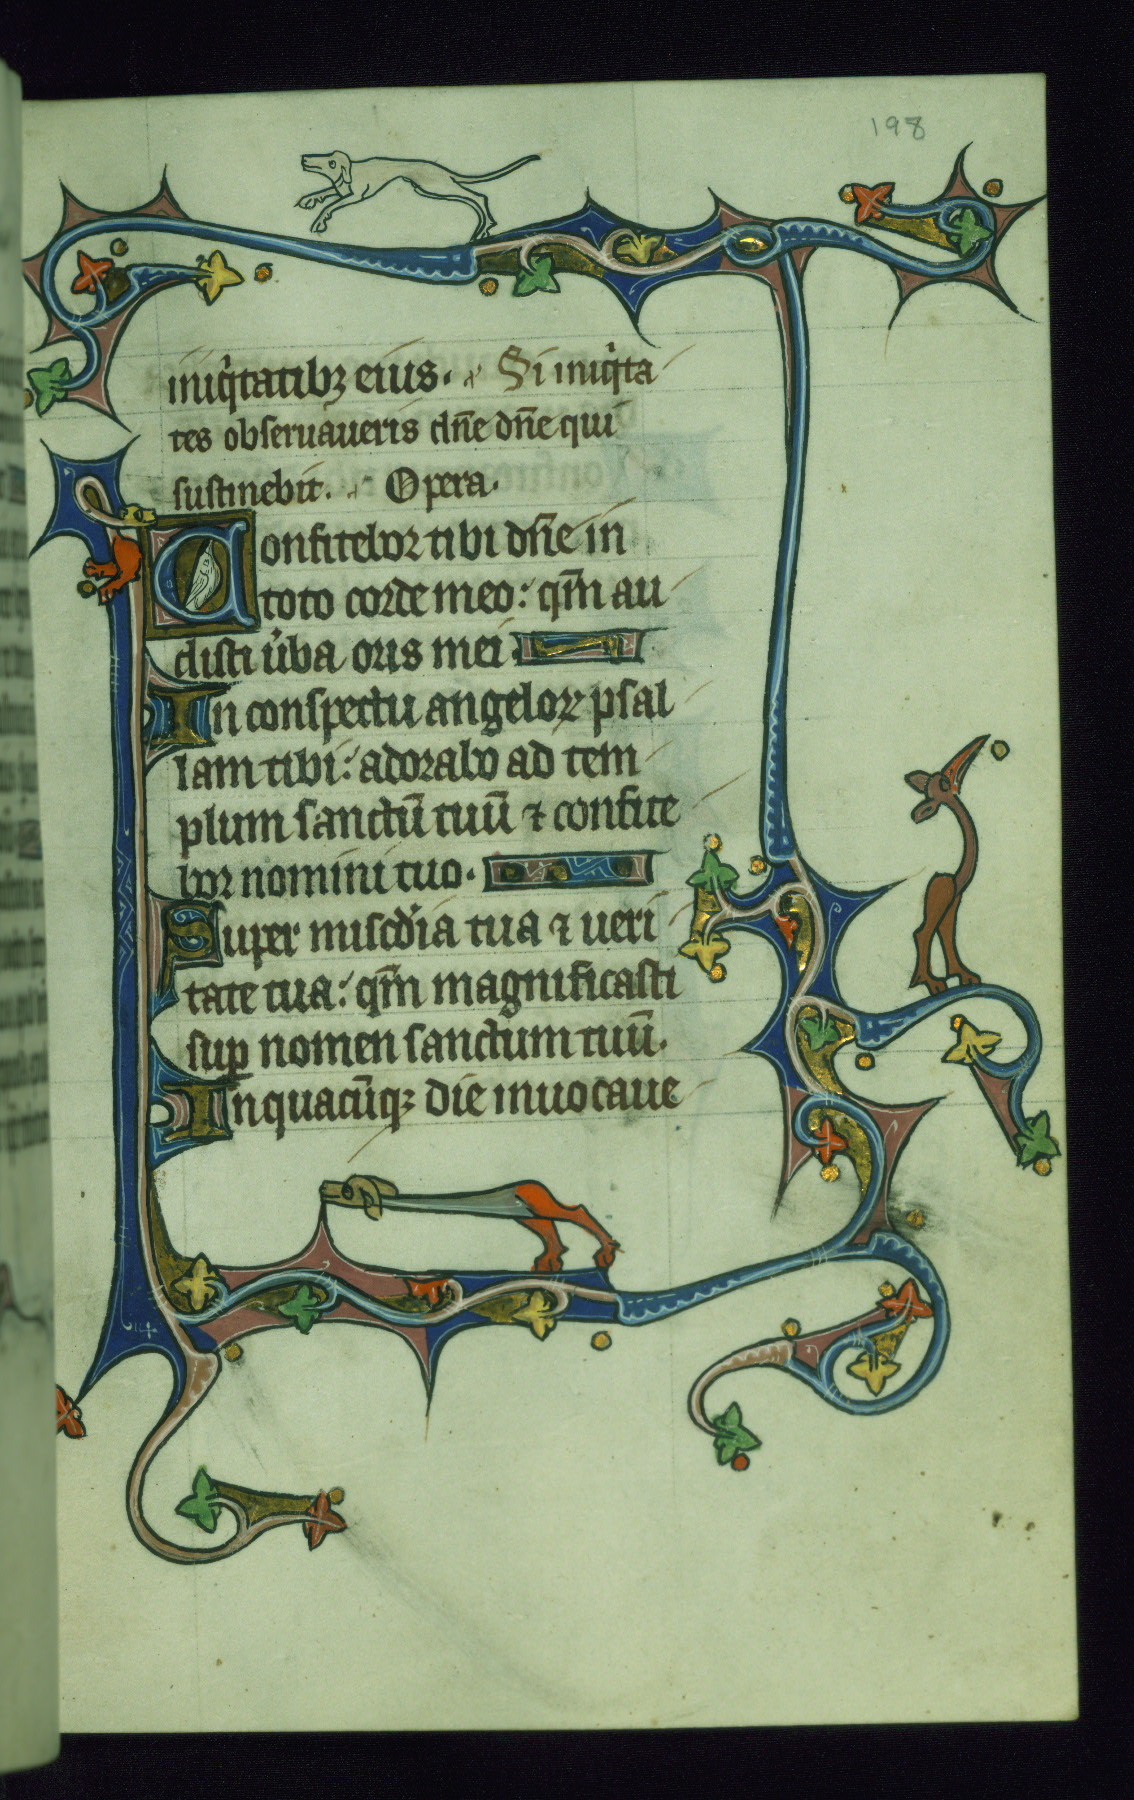 198
iniq̉tatibꝫ eius. Si iniq̉ta
tes obseruaueris dn̄e dn̄e qui
sustinebit. Opera.
Confitebor tibi dn̄e in
toto corde meo: qm̄ au
disti u̓ba oris mei
In conspectu angeloꝝ psal
lam tibi: adorabo ad tem
plum sanctū tuū ⁊ confite
bor nomini tuo.
Super misc̄dia tua ⁊ ueri
tate tua: qm̄ magnificasti
suꝑ nomen sanctum tuū.
In quacūqꝫ die inuocaue